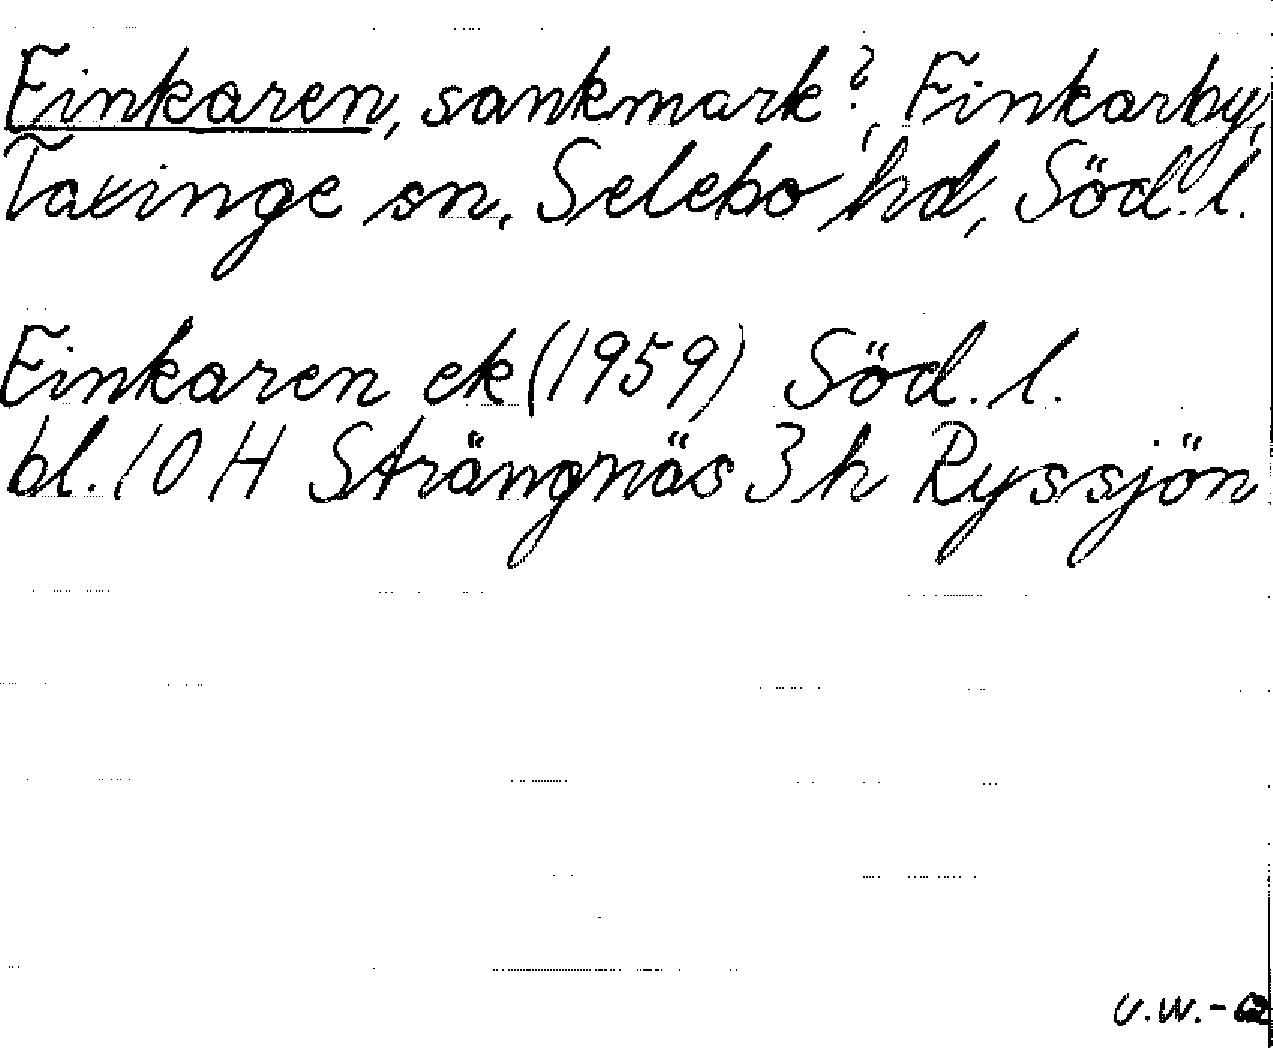 Finkaren, sankmark?, Finkarby,
Taxinge sn, Selebo hd, Söd. l.
Finkaren ek (1959) Söd. l.
bl. 10 H Strängnäs 3 h Ryssjön
U.W.-62